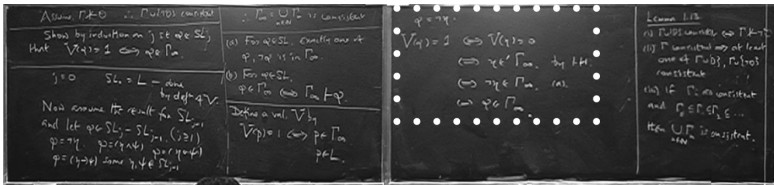 Assume Γ⊬θ ∴ Γ∪{¬θ} consistent
Show by induction on j st φ∈SLj
that V(φ)=1 ⟺ φ∈Γ∞
j=0 SL₀ = L – done
by def of V.
Now assume the result for SLj-1
and let φ∈SLj – SLj-1 (j≥1)
∴ Γ∞ = ∪ Γn is consistent
n∈N
(a) For φ∈SL, exactly one of
φ, ¬φ is in Γ∞
(b) For φ∈SL
φ∈Γ∞ ⟺ Γ∞ ⊢ φ.
Define a val. V by
V(p)=1 ⟺ p∈Γ∞
p∈L.
φ = ¬η.
V(φ)=1 ⟺ V(η)=0
⟺ η∉Γ∞ by IH.
⟺ ¬η∈Γ∞ (a)
⟺ φ∈Γ∞
Lemma
(ii) Γ consistent ⟹ at least
one of Γ∪{φ}, Γ∪{¬φ}
consistent
(iii) if Γi are consistent
and Γ₀⊆Γ₁⊆Γ₂⊆...
then ∪Γn is consistent.
n∈N